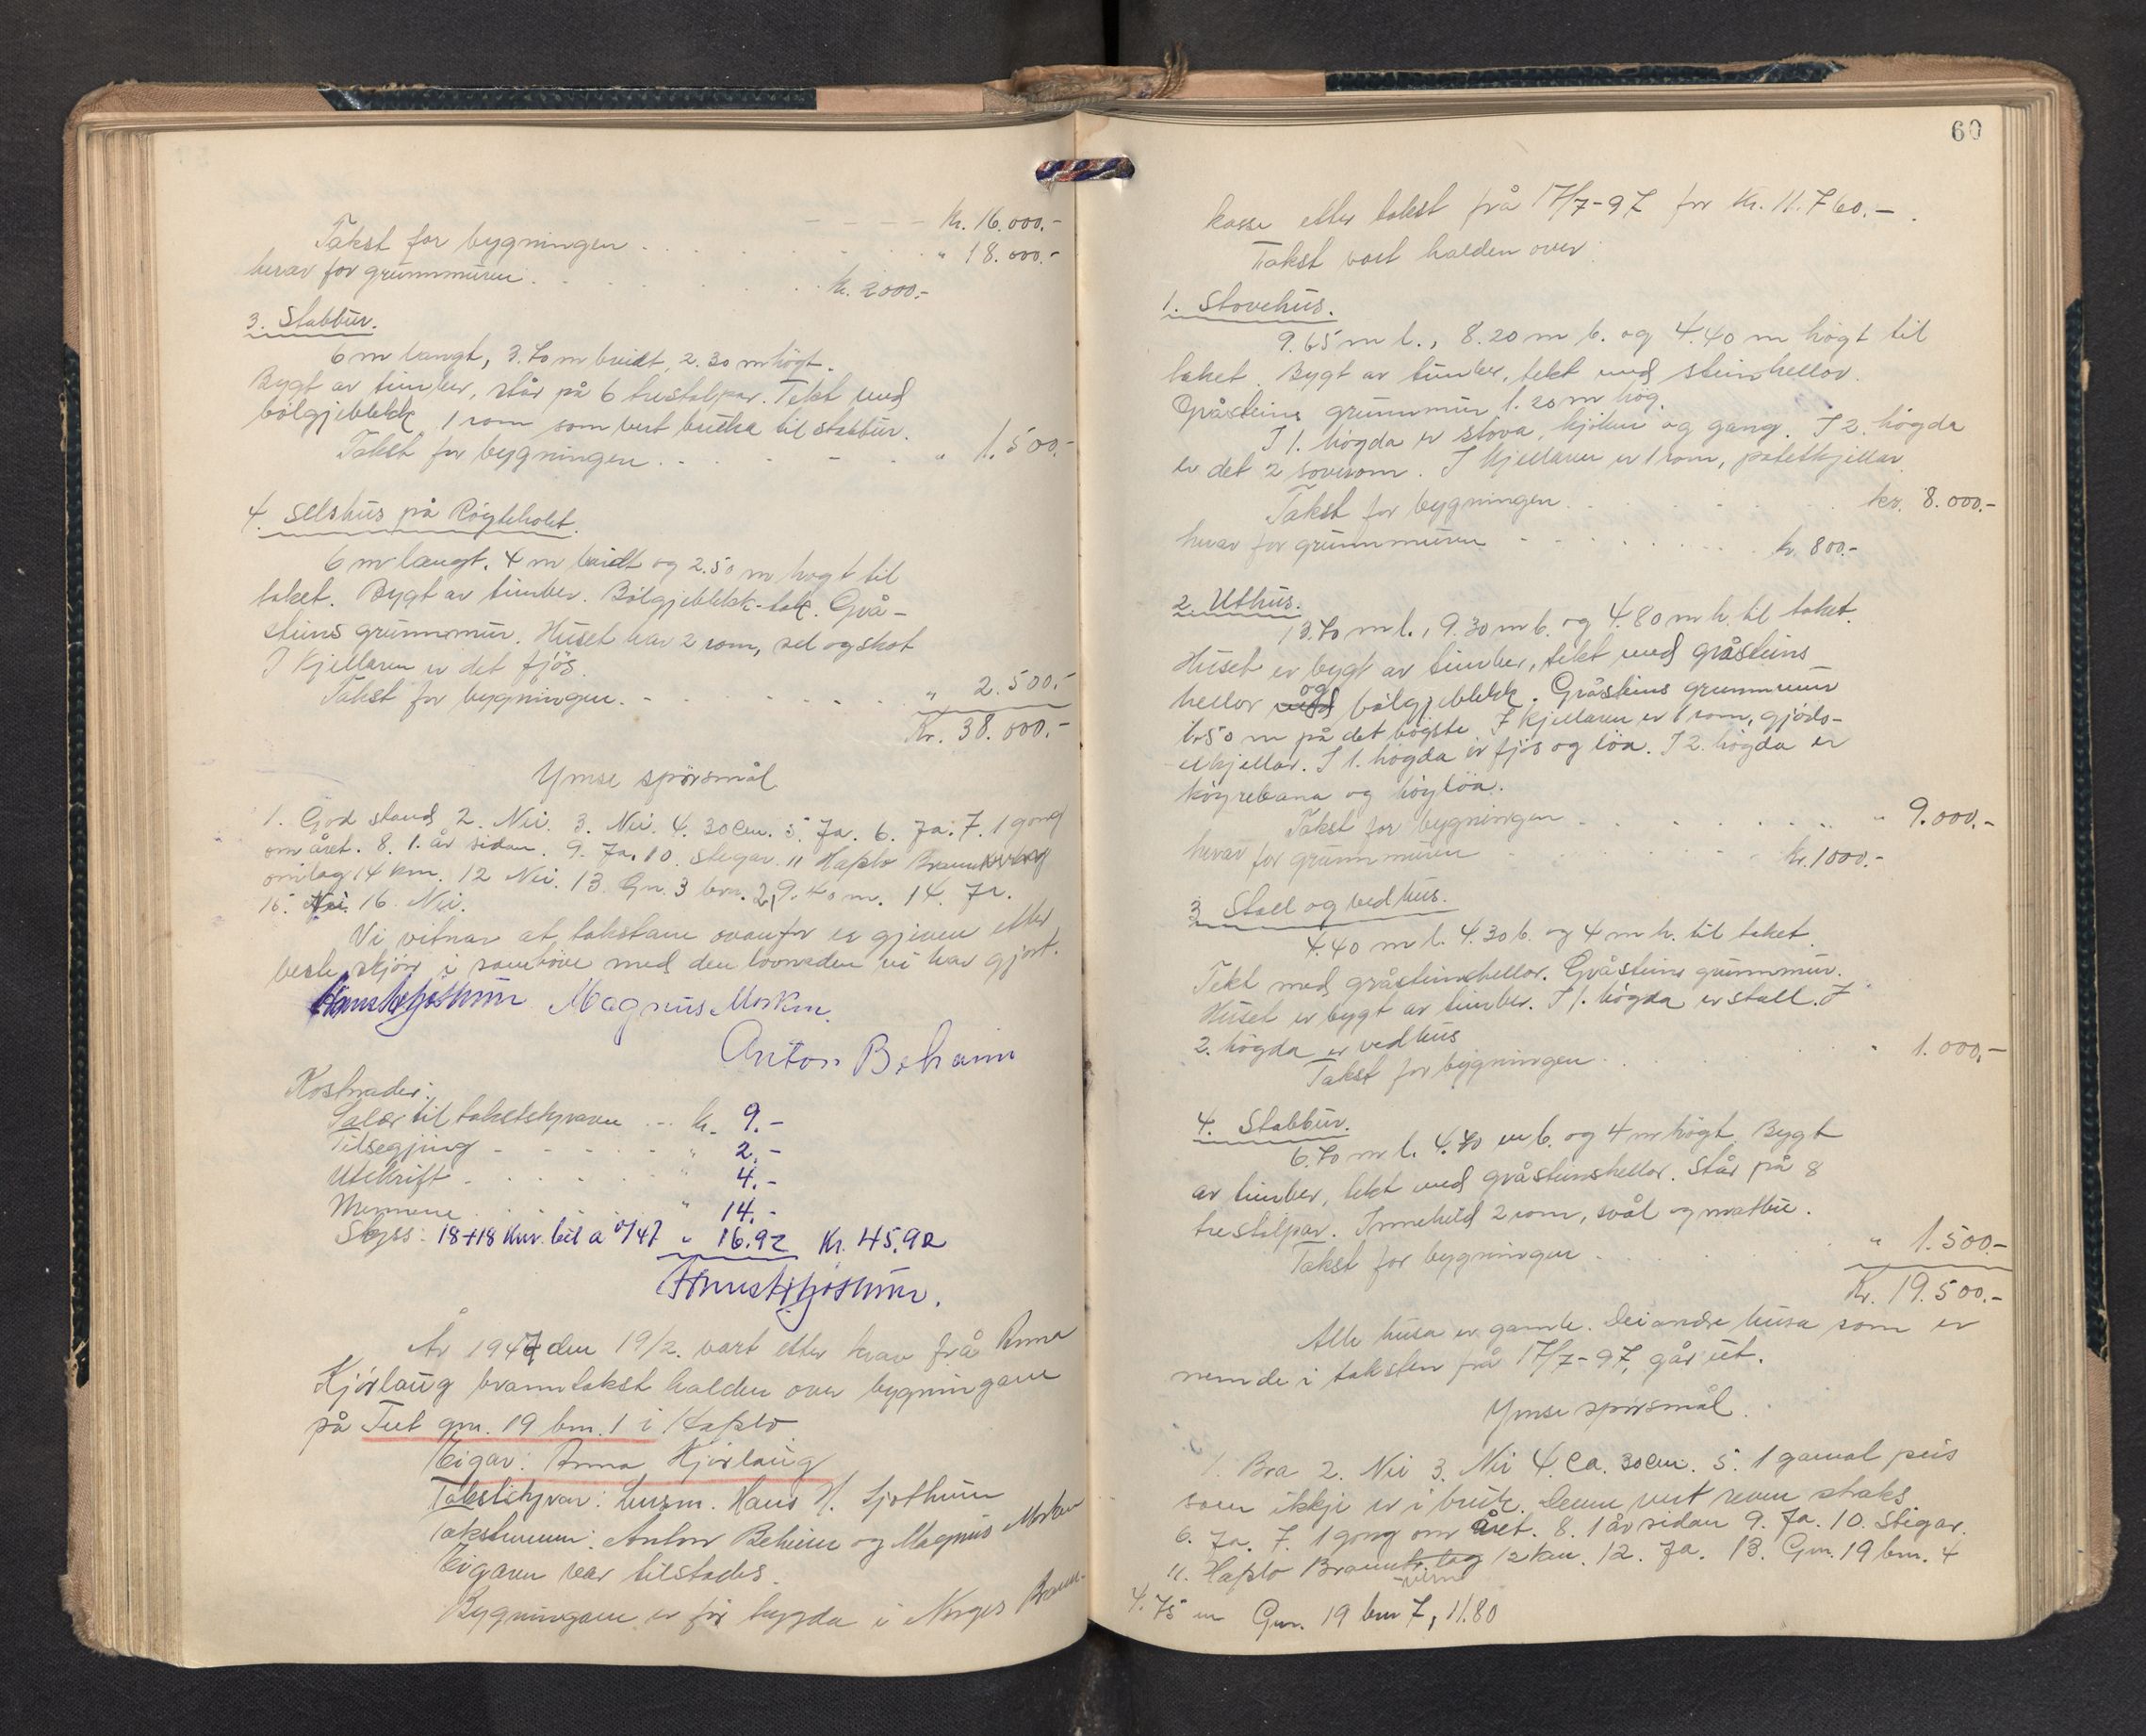 Kr. 16.000.-
Takst for bygningen . . . . . . " 18.000.-
herav for grunnmuren . . . . . kr. 2000.-
3. Stabbur.
6 m langt, 3.70 m breidt, 2.30 m högt.
Bygt av timber, står på 6 trestolpar. Tekt med
bölgjeblekk. 1 rom som vert brúka til stabbur.
Takst for bygningen . . . . . " 1.500.-
4. Selshus på
6 m langt. 4 m breidt og 2.50 m högt til
taket. Bygt av timber. Bölgjeblekk-tak. Grå-
steins grunnmur. Huset har 2 rom, sel og skot
I kjellaren er det fjös.
Takst for bygningen. . . . . . " 2.500.-
Kr. 38.000.-
Ymse spörsmål
1. God stand 2. Nei. 3. Nei. 4. 30 cm. 5. Ja. 6. Ja. 7. 1 gong
om året. 8. 1. år sidan. 9. Ja. 10. Stegar. 11 Hafslo Brannvern
omlag 14 km. 12 Nei. 13. Gn. 3 brn. 2, 9.40 m. 14. Ja.
15. Nei. 16. Nei.
Vi vitnar at takstane ovanfor er gjevne etter
beste skjön i samhöve med den lovnaden vi har gjort.
Magnus Morken.
Anton Beheim
Kostnader:
Salær til takstskyvaren . . . kr. 9.-
Tilsegjing - - - - - " 2.-
Utskrift . . . . . " 4.-
Mennene . . . . . " 14.-
Skyss: 18+18 km. bil a 0/47 " 16.92 Kr. 45.92
År 1947 den 19/2. vart etter krav frå Anna
Kjörlaug branntakst halden over bygningane
på Tut gnr. 19 bnr. 1 i Hafslo
Eigar: Anna Kjörlaug
Takstskyvar: lensm. Hans H. Ljothun
Takstmenn: Anton Beheim og Magnus Morken
Eigaren var tilstades.
Bygningane er för trygda i Norges Brann-
60
kasse etter takst frå 17/7-97 for Kr. 11.760.-.
Takst vart halden over:
1. Stovehus.
9.65 m l., 8.20 m b. og 4.40 m högt til
taket. Bygt av timber, tekt med steinhellor.
Gråsteins grunnmur 1.20 m hög.
I 1. högda er stova, kjöken og gang. I 2. högda
er det 2 soverom. I kjellaren er 1 rom, potetkjellar.
Takst for bygningen . . . . . kr. 8.000.-
herav for grunnmuren - - - . . . kr. 800.-
2. Uthus.
13.70 m l., 9.30 m b. og 4.80 m h. til taket.
Huset er bygt av timber, tekt med gråsteins
hellor og bölgjeblekk. Gråsteins grunnmur
1.50 m på det högste. I kjellaren er 1 rom, gjöds-
elkjellar. I 1. högda er fjös og löa. I 2. högda er
köyrebana og höylöa.
Takst for bygningen . . . . . " 9.000.-
herav for grunnmuren . . . . . kr. 1000.-
3 Stall og vedhus.
4.40 m l. 4.30 b. og 4 m h. til taket.
Tekt med gråsteinshellor. Gråsteins grunnmur.
Huset er bygt av timber. I 1. högda er stall. I
2. högda er vedhus
Takst for bygningen . . . . . " 1.000.-
4. Stabbur.
6.70 m l. 4.70 m b. og 4 m högt. Bygt
av timber, tekt med gråsteinshellor. Står på 8
trestolpar. Inneheld 2 rom, svål og matbu.
Takst for bygningen . . . . . " 1.500.-
Kr. 19.500.-
Alle husa er gamle. Dei andre husa som er
nemde i taksten frå 17/7-97, går ut.
Ymse spörsmål.
1. Bra 2. Nei 3. Nei 4. Ca. 30 cm. 5. 1 gamal peis
som ikkje er i bruk. Denne vert reven straks.
6. Ja. 7. 1 gong om året. 8. 1 år sidan 9. Ja. 10. Stigar.
11. Hafslo Brannvern 12 km. 12. Ja. 13. Gnr. 19 bnr. 4
4.75 m Gnr. 19 bnr 7, 11.80